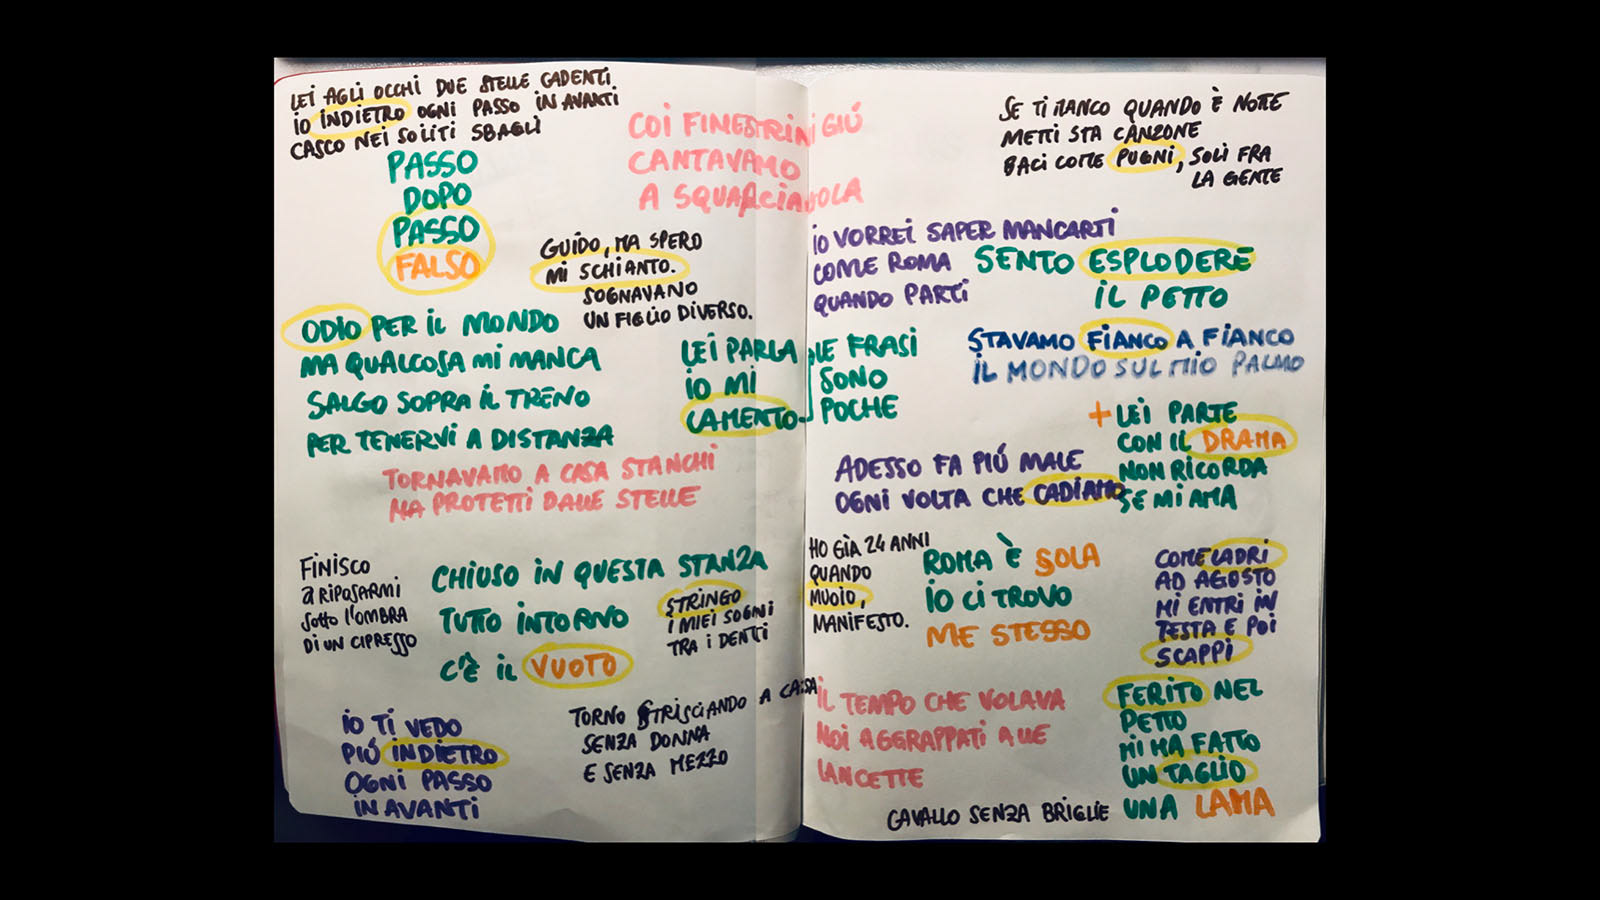 LEI AGLI OCCHI DUE STELLE CADENTI
IO INDIETRO OGNI PASSO IN AVANTI
CASCO NEI SOLITI SBAGLI
PASSO
DOPO
PASSO
FALSO
COI FINESTRINI GIÚ
CANTAVAMO
A SQUARCIAGOLA
GUIDO, MA SPERO
MI SCHIANTO.
SOGNAVANO
UN FIGLIO DIVERSO.
ODIO PER IL MONDO
MA QUALCOSA MI MANCA
SALGO SOPRA IL TRENO
PER TENERVI A DISTANZA
LEI PARLA
IO MI
LAMENTO
LE FRASI
SONO
POCHE
TORNAVAMO A CASA STANCHI
MA PROTETTI DALLE STELLE
FINISCO
A RIPOSARMI
SOTTO L'OMBRA
DI UN CIPRESSO
CHIUSO IN QUESTA STANZA
TUTTO INTORNO
C'È IL VUOTO
STRINGO
I MIEI SOGNI
TRA I DENTI
IO TI VEDO
PIÚ INDIETRO
OGNI PASSO
IN AVANTI
TORNO STRISCIANDO A CASA
SENZA DONNA
E SENZA MEZZO
SE TI MANCO QUANDO È NOTTE
METTI STA CANZONE
BACI COME PUGNI, SOLI FRA
LA GENTE
IO VORREI SAPER MANCARTI
COME ROMA
QUANDO PARTI
SENTO ESPLODERE
IL PETTO
STAVAMO FIANCO A FIANCO
IL MONDO SUL MIO PALMO
+ LEI PARTE
CON IL DRAMA
NON RICORDA
SE MI AMA
ADESSO FA PIÚ MALE
OGNI VOLTA CHE CADIAMO
HO GIÀ 24 ANNI
QUANDO
MUOIO,
MANIFESTO.
ROMA È SOLA
IO CI TROVO
ME STESSO
COME LADRI
AD AGOSTO
MI ENTRI IN
TESTA E POI
SCAPPI
IL TEMPO CHE VOLAVA
NOI AGGRAPPATI ALLE
LANCETTE
FERITO NEL
PETTO
MI HA FATTO
UN TAGLIO
UNA LAMA
CAVALLO SENZA BRIGLIE